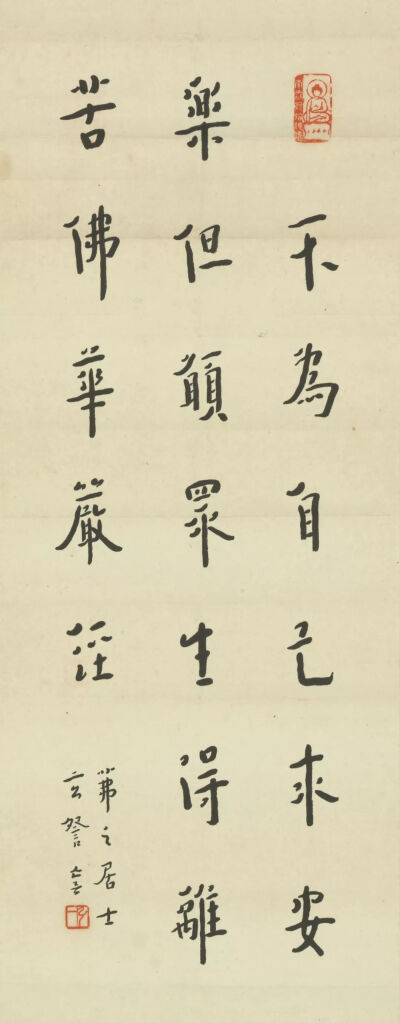 不為自己求安
樂但願眾生得離
苦佛華嚴經
茀之居士
玄詧書